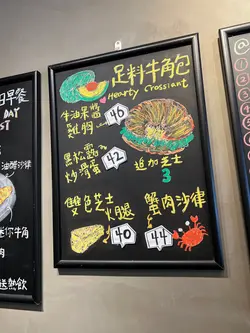 足料牛角包
Hearty Crossiant
牛油果醬
雞胸
46
黑松露
炒滑蛋
42
追加芝士
3
雙色芝士
火腿
40
蟹肉沙律
44
早餐
DAY
油鹽沙律
迷你牛角
肉
送熱飲